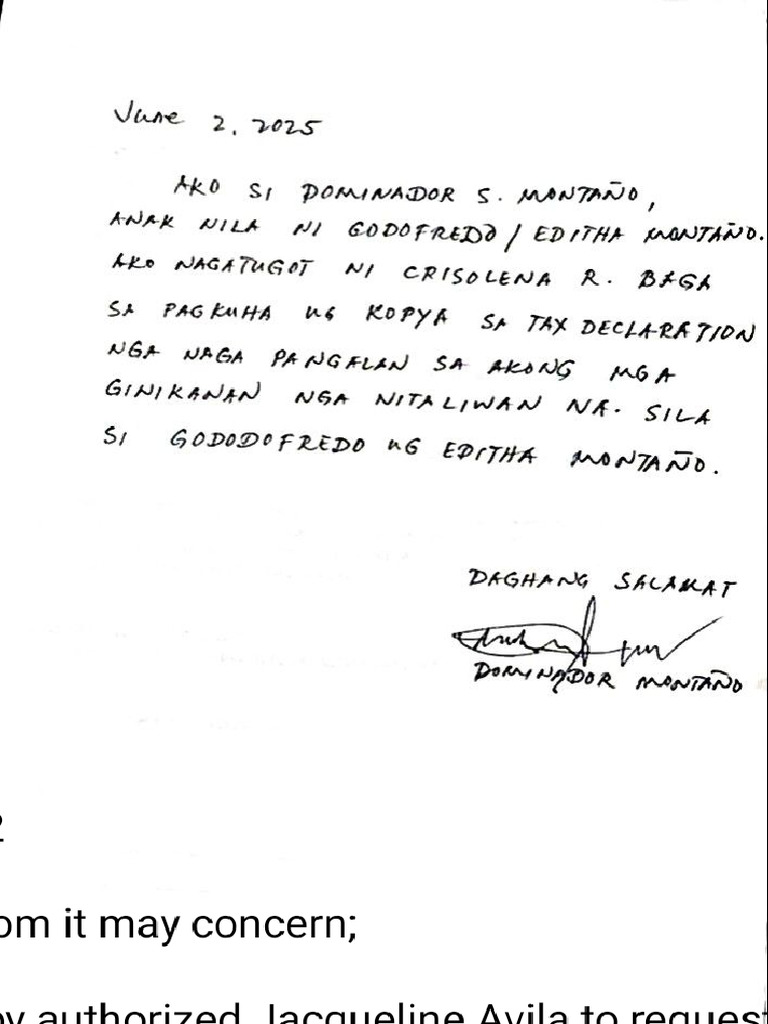 June 2, 2025
AKO SI DOMINADOR S. MONTAÑO,
ANAK NILA NI GODOFREDO / EDITHA MONTAÑO.
AKO NAGATUGOT NI CRISOLENA R. BAGA
SA PAGKUHA UG KOPYA SA TAX DECLARATION
NGA NAGA PANGALAN SA AKONG MGA
GINIKANAN NGA NITALIWAN NA. SILA
SI GODODOFREDO UG EDITHA MONTAÑO.
DAGHANG SALAMAT
DOMINADOR MONTAÑO
om it may concern;
by authorized Jacqueline Avila to request